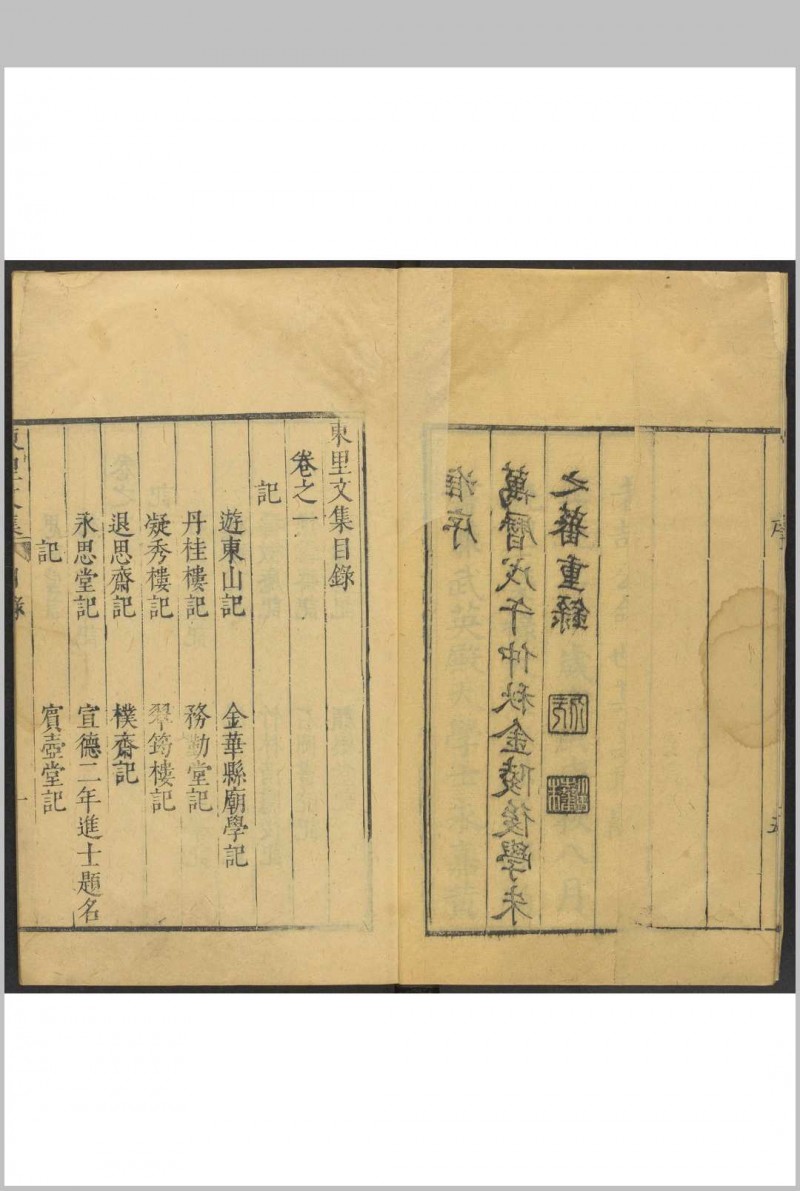 淮序
萬曆戊午仲秋金陵後學朱
之蕃重錄
東里文集目錄
卷之一
記
遊東山記 金華縣廟學記
丹桂樓記 務勤堂記
凝秀樓記 翠筠樓記
退思齋記 樸齋記
永思堂記 宣德二年進士題名
記 賓壺堂記
東里文集 目錄 一